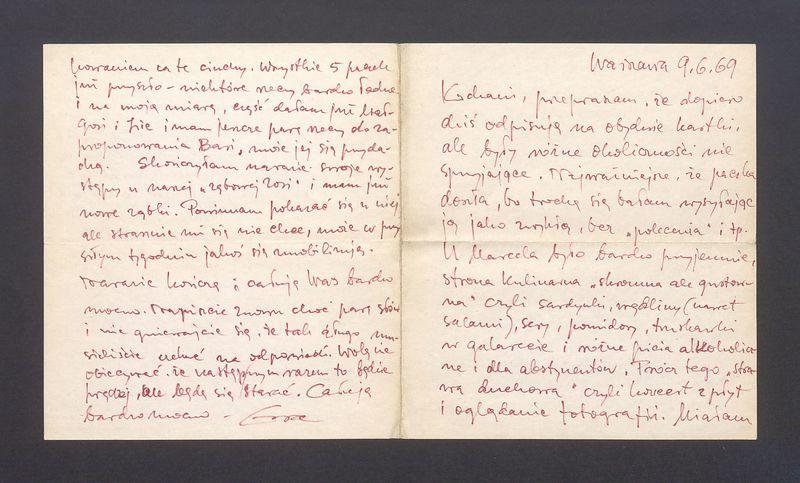 Warszawa 9.6.69
Kochani, przepraszam, że dopiero
dziś odpisuję na obydwie kartki,
ale były różne okoliczności nie
sprzyjające. Najważniejsze, że paczka
doszła, bo trochę się bałam wysyłając
ją jako zwykłą, bez „polecenia" i tp.
U Marcela było bardzo przyjemnie,
strona kulinarna „skromna ale gustow-
na" czyli sardynki, wędliny (nawet
salami), sery, pomidory, truskawki
w galarecie i różne picia alkoholicz-
ne i dla abstynentów. Prócz tego „stra-
wa duchowa" czyli koncert z płyt
i oglądanie fotografii. Miałam
za te ciuchy. Wszystkie 5 paczek
już przyszło – niektóre rzeczy bardzo ładne
i na moją miarę, część dałam już Małgo-
gosi i Zie i mam jeszcze parę rzeczy do za-
proponowania Basi, może jej się przyda-
dzą. Skończyłam narazie swoje wy-
stępy u naszej „zębowej Zosi" i mam już
nowe ząbki. Powinnam pokazać się u niej
ale strasznie mi się nie chce, może w przy
szłym tygodniu jakoś się zmobilizuję.
Narazie kończę i całuję Was bardzo
mocno. Napiszcie znowu choć parę słów
i nie gniewajcie się, że tak długo mu-
sieliście czekać na odpowiedź. Wolę nie
obiecywać że następnym razem to będzie
prędzej, ale będę się starać. Całuję
bardzo mocno –